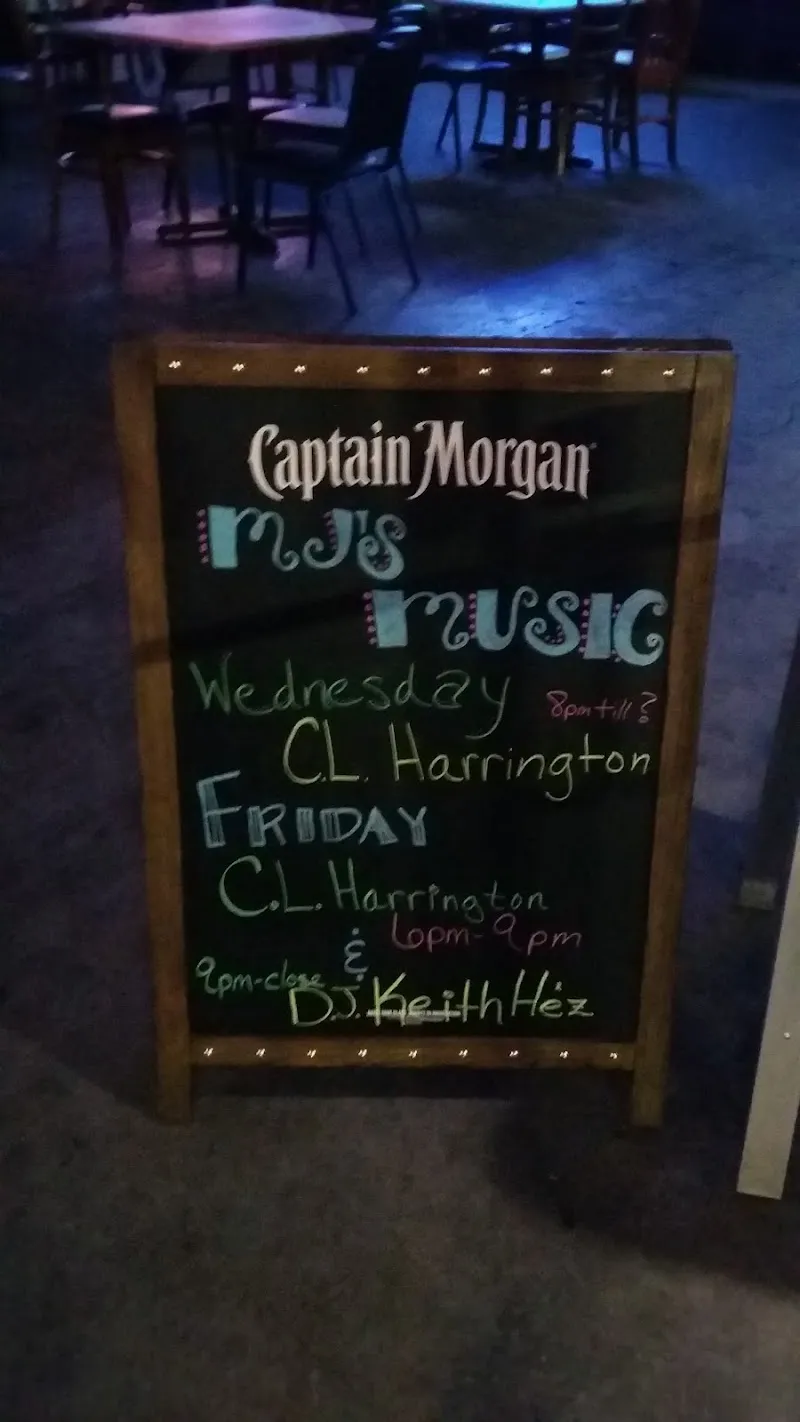 Captain Morgan
MJ's
MUSIC
Wednesday 8pm till?
C.L. Harrington
FRIDAY
C.L. Harrington
6pm-9pm
&
9pm-close
D.J. Keith Hez